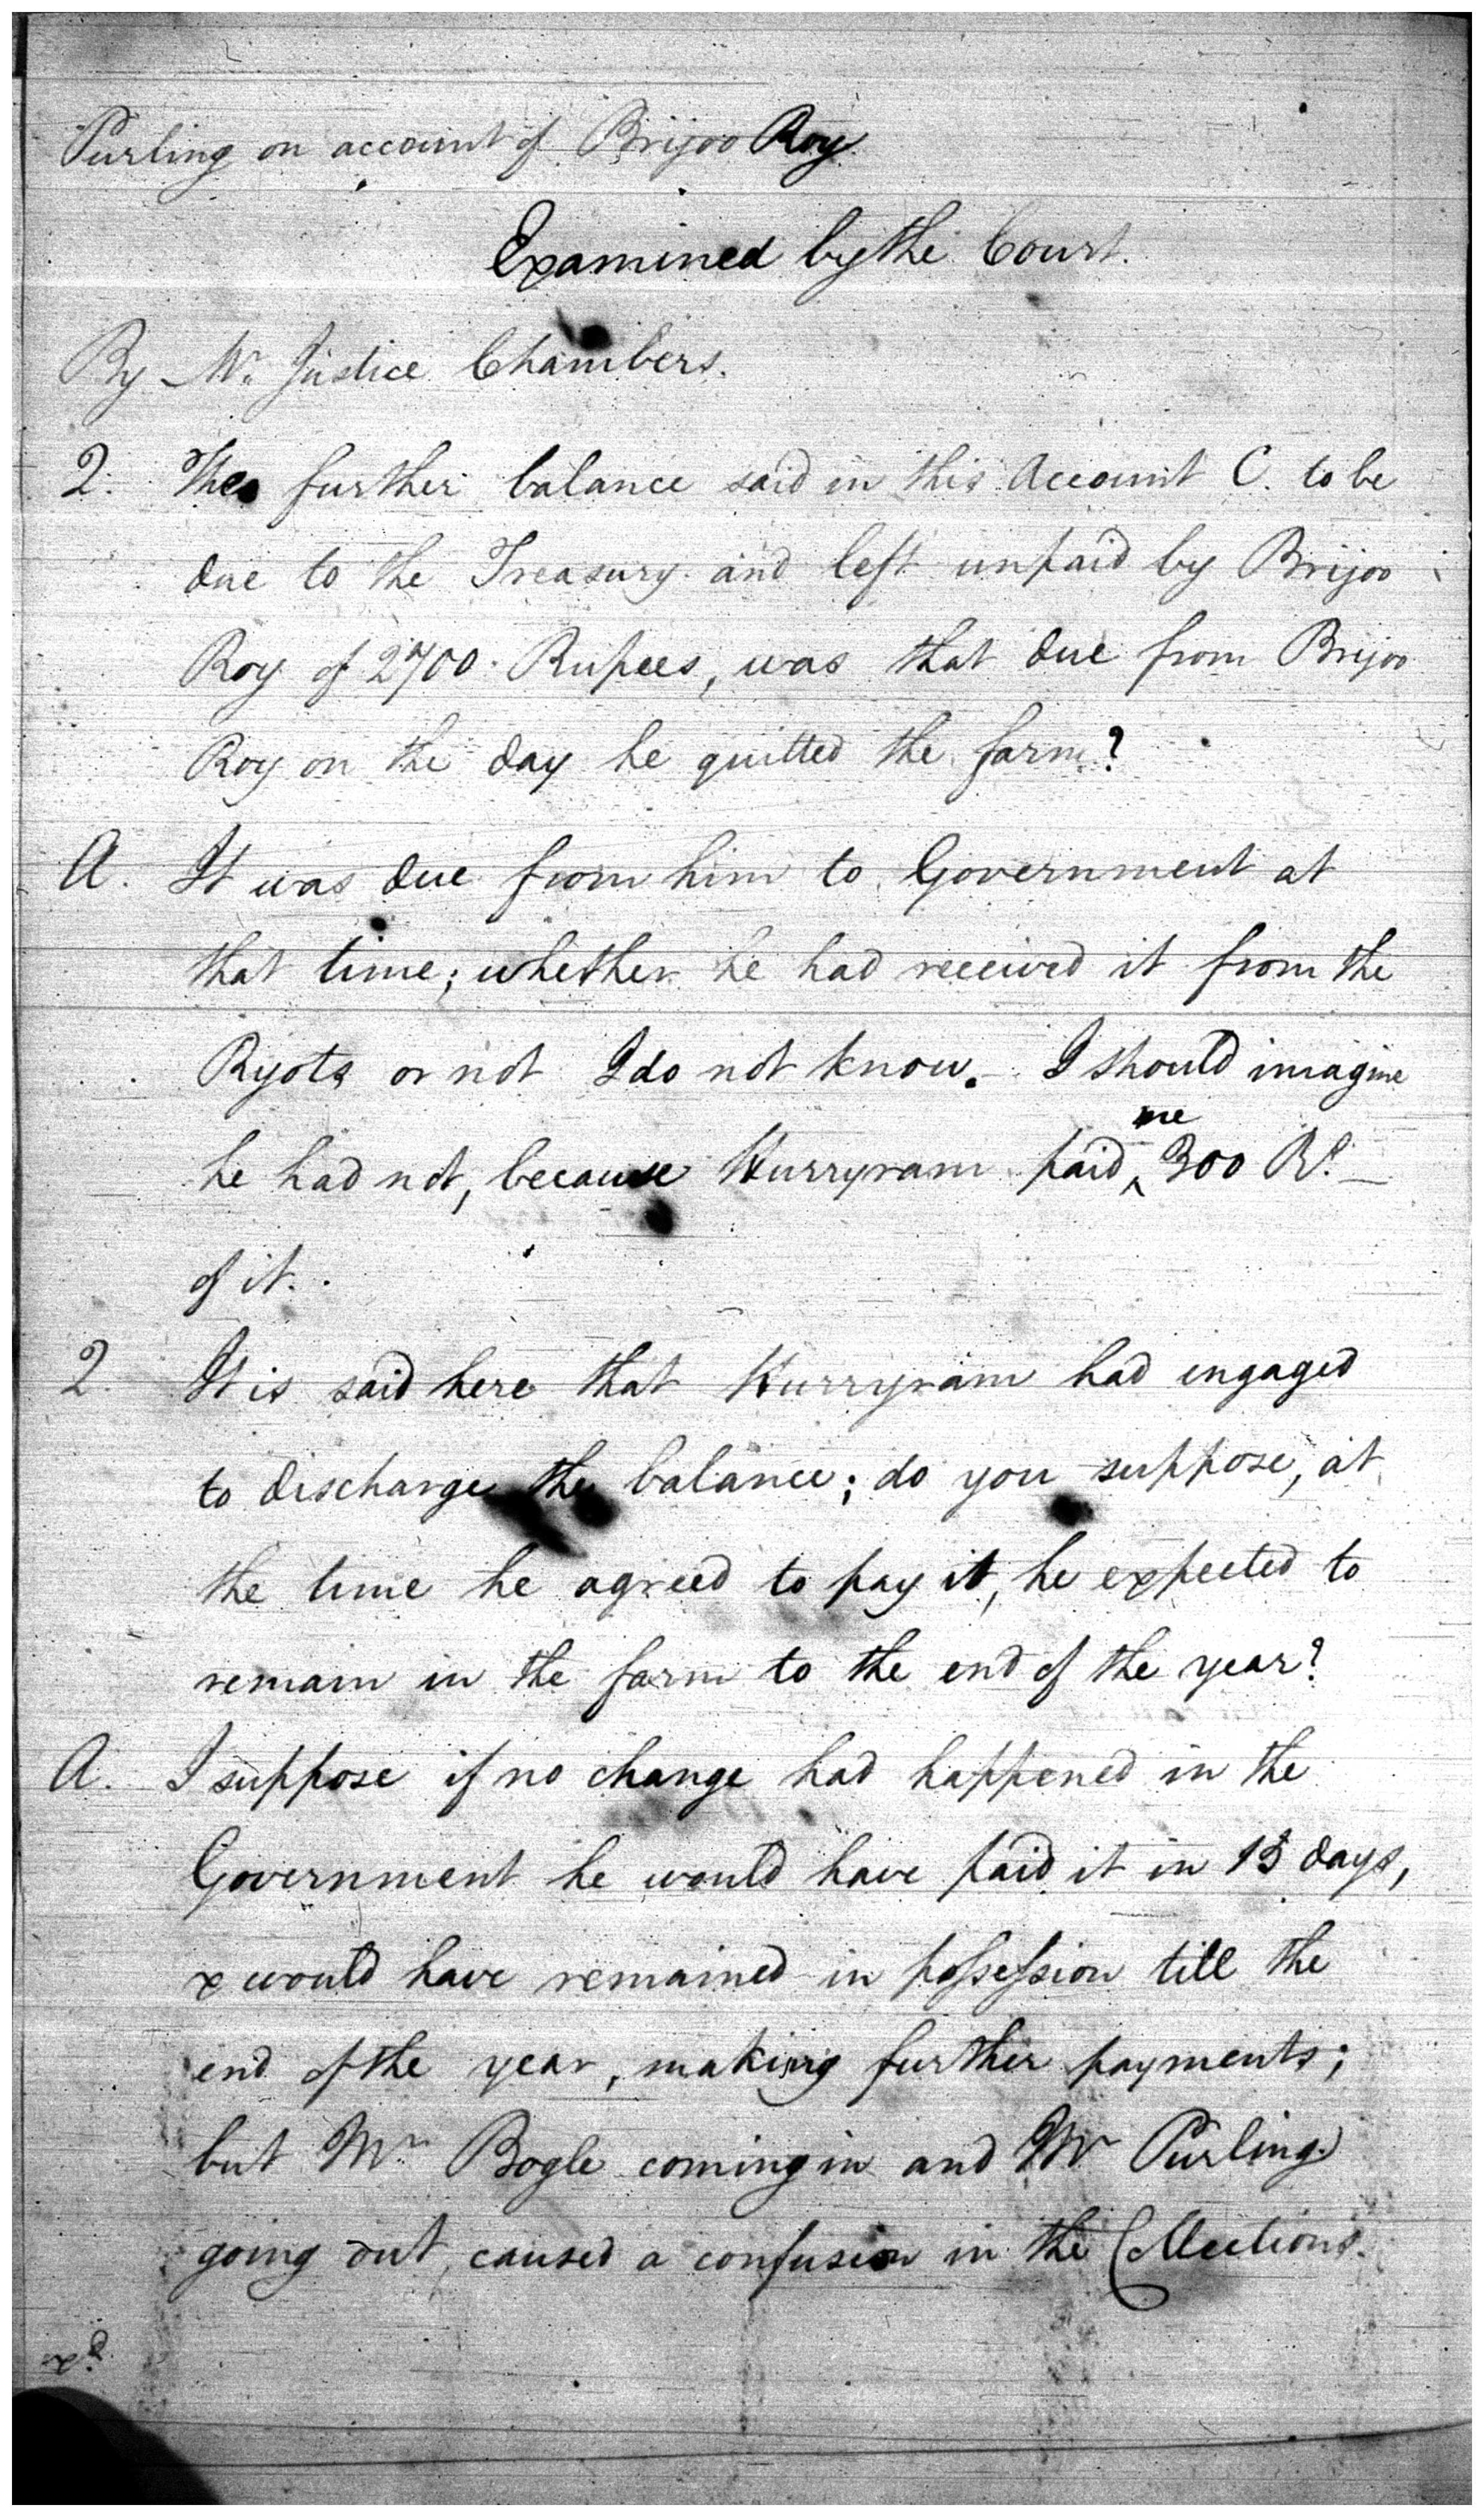 Purling on account of Brijoo Roy
Examined by the Court.
By Mr Justice Chambers.
Q. The further balance said in this Account C. to be
due to the Treasury and left unpaid by Brijoo
Roy of 2700 Rupees, was that due from Brijoo
Roy on the day he quitted the farm?
A. It was due from him to Government at
that time; whether he had received it from the
Ryots or not I do not know. I should imagine
he had not, because Hurryram paid ^me 300 Rs.
of it.
Q. It is said here that Hurryram had engaged
to discharge the balance; do you suppose, at
the time he agreed to pay it, he expected to
remain in the farm to the end of the year?
A. I suppose if no change had happened in the
Government he would have paid it in 15 days,
& would have remained in possession till the
end of the year, making further payments;
but Mr Bogle coming in and Mr Purling
going out, caused a confusion in the Collections.